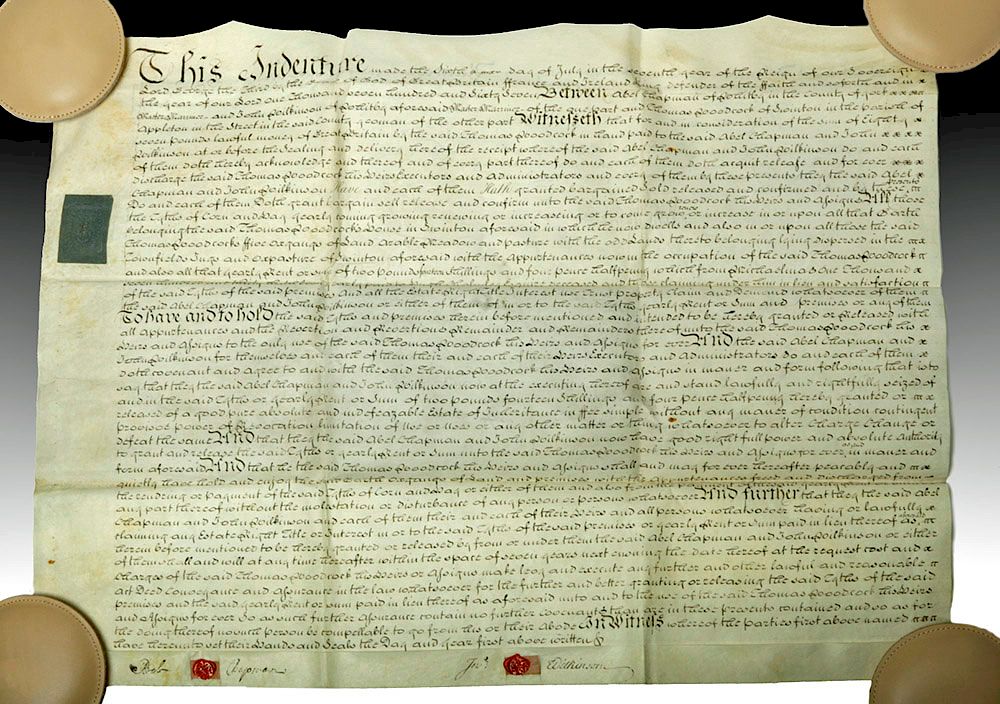 This Indenture made the Sixth day of July in the seventh year of the Reign of our Sovereign
Lord George the Third by the Grace of God of Great Britain ffrance and Ireland King defender of the faith and so forth and in
the year of our Lord One thousand seven hundred and Sixty Seven Between Abel Chapman of Whitby in the County of York
Master Mariner and John Wilkinson of Whitby aforesaid Master Mariner of the one part and Thomas Woodcock of Swinton in the parish of
Appleton in the Street in the said County yeoman of the other part Witnesseth that for and in consideration of the Sum of Eighty
seven pounds lawful money of Great Britain by the said Thomas Woodcock in Hand paid to the said Abel Chapman and John
Wilkinson at or before the Sealing and delivery hereof the receipt whereof the said Abel Chapman and John Wilkinson do and each
of them doth hereby acknowledge and thereof and of every part thereof do and each of them doth acquit release and for ever
discharge the said Thomas Woodcock his Heirs Executors and Administrators and every of them by these presents they the said Abel
Chapman and John Wilkinson Have and each of them Hath granted bargained Sold released and confirmed and by these presents
Do and each of them Doth grant bargain sell release and confirm unto the said Thomas Woodcock his Heirs and Assigns All those
the Tyths of Corn and Hay yearly coming growing renewing or increasing or to come grow or increase in or upon all that Garth
belonging the said Thomas Woodcocks House in Swinton aforesaid in which he now dwells and also in or upon all those the said
Thomas Woodcocks ffive Oxgangs of Land Arable Meadow and pasture with the odd Lands thereto belonging lying dispersed in the
Townfields Ings and Oxpasture of Swinton aforesaid with the Appurtenances now in the occupation of the said Thomas Woodcock
and also all that yearly Rent or Sum of two pounds fourteen Shillings and four pence halfpenny which from Michaelmas One thousand
of the said Tyths of the said premises and all the Estate Right Title Interest use Trust property Claim and Demand whatsoever of them
the said Abel Chapman and John Wilkinson or either of them of in or to the said Tyths yearly Rent or Sum and premises or any of them
To have and to hold the said Tyths and premises herein before mentioned and intended to be hereby granted or Released with
all Appurtenances and the Reversion and Reversions Remainder and Remainders thereof unto the said Thomas Woodcock his
Heirs and Assigns to the only use of the said Thomas Woodcock his Heirs and Assigns for ever And the said Abel Chapman and
John Wilkinson for themselves and each of them their and each of their Heirs Executors and Administrators do and each of them
doth covenant and agree to and with the said Thomas Woodcock his Heirs and Assigns in maner and form following that is to
say that they the said Abel Chapman and John Wilkinson now at the executing hereof are and stand lawfully and rightfully seized of
and in the said Tyths or yearly Rent or Sum of two pounds fourteen Shillings and four pence halfpenny hereby granted or
released of a good pure absolute and indefeazable Estate of Inheritance in ffee simple without any maner of condition contingent
proviso power of Revocation limitation of use or uses or any other matter or thing whatsoever to alter Charge Change or
defeat the same And that they the said Abel Chapman and John Wilkinson now have good right full power and absolute Authority
to grant and release the said Tyths or yearly Rent or Sum unto the said Thomas Woodcock his Heirs and Assigns for ever in maner and
form aforesaid And that he the said Thomas Woodcock his Heirs and Assigns shall and may for ever hereafter peacably and
quietly have hold and enjoy the Garth Oxgangs of Land and premises with the appurtenances freed and discharged from
the rendring or payment of the said Tyths of Corn and Hay or either of them and also
any part thereof without the molestation or disturbance of any person or persons whatsoever And further that they the said Abel
Chapman and John Wilkinson and each of them their and each of their Heirs and all persons whatsoever having or lawfully
claiming any Estate Right Title or Interest in or to the said Tyths of the said premises or yearly Rent or Sum paid in lieu thereof as
herein before mentioned to be hereby granted or released by from or under them the said Abel Chapman and John Wilkinson or either
of them shall and will at any time hereafter within the space of seven years next ensuing the date hereof at the request cost and
Charges of the said Thomas Woodcock his Heirs or Assigns make levy and execute any further and other lawful and reasonable
Act Deed Conveyance and Assurance in the law whatsoever for the further and better granting or releasing the said Tyths of the said
premises and the said yearly Rent or Sum paid in lieu thereof as aforesaid unto and to the use of the said Thomas Woodcock his Heirs
and Assigns for ever So as such further Assurance contain no further Covenants than are in these presents contained and so as for
the doing thereof no such person be compellable to go from his or their Abode In Witness whereof the parties first above named
have hereunto set their Hands and Seals the Day and year first above written
Abel Chapman Jno. Wilkinson